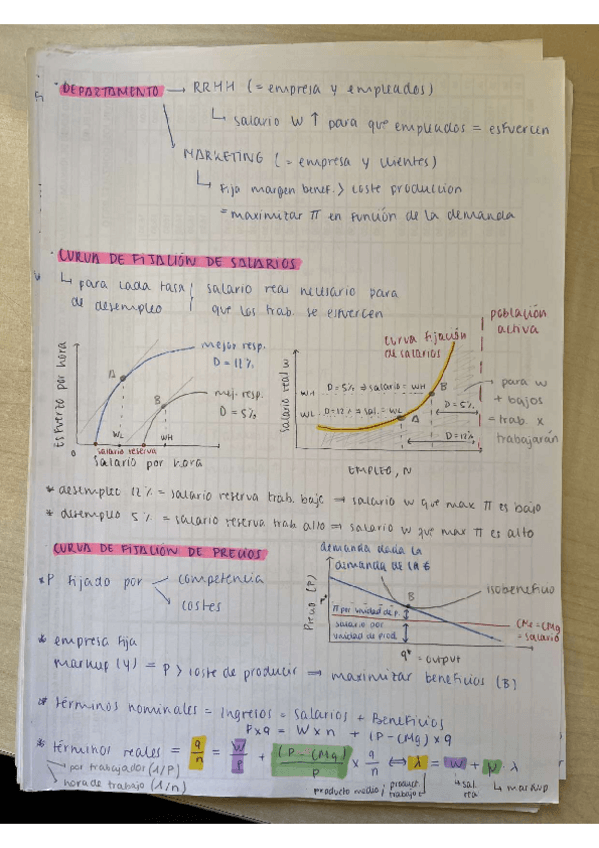 · DEPARTAMENTO → RRHH (= empresa y empleados)
↳ salario W ↑ para que empleados = esfuercen
MARKETING (= empresa y clientes)
↳ Fija margen benef. > coste produccion
= maximizar π en función de la demanda
· CURVA DE FIJACIÓN DE SALARIOS
↳ para cada tasa de desempleo { salario real necesario para que los trab. se esfuercen
esfuerzo por hora
mejor resp.
D = 12%
A
mej. resp.
D = 5%
B
0
WL
WH
salario reserva
salario por hora
población activa
curva fijación de salarios
salario real w
WH
D = 5% ⇒ salario = WH
B
WL
D = 12% ⇒ sal. = WL
A
D = 5%
D = 12%
→ para w + bajos = trab. x trabajarán
EMPLEO, N
* desempleo 12% = salario reserva trab. bajo ⇒ salario w que max π es bajo
* desempleo 5% = salario reserva trab. alto ⇒ salario w que max π es alto
CURVA DE FIJACIÓN DE PRECIOS
* P fijado por
competencia
costes
demanda dada la
demanda de la E
Precio (P)
B
isobeneficio
π por unidad de p.
salario por
unidad de prod.
CMe = CMg
= salario
q* = output
* empresa fija
markup (4) = P > coste de producir ⇒ maximizar beneficios (B)
* Términos nominales = Ingresos = salarios + Beneficios
P x q = W x n + (P - CMg) x q
* términos reales = q/n = W/P + (P - CMg)/P x q/n ⇔ λ = w + μ · λ
→ por trabajadores (1/P)
hora de trabajo (1/n)
producto medio /
product. trabajo
↳ sal. real
↳ markup